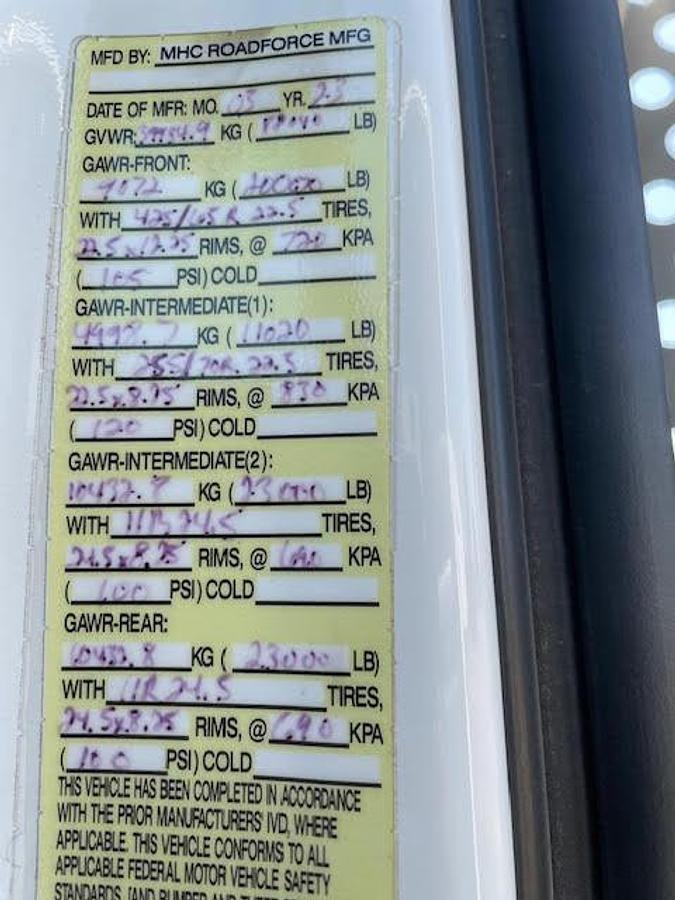 MFD BY: MHC ROADFORCE MFG
DATE OF MFR: MO. 03 YR. 23
GVWR: KG ( LB)
GAWR-FRONT:
9072 KG ( LB)
WITH 425/65R 22.5 TIRES,
22.5x12.25 RIMS, @ 720 KPA
(105 PSI) COLD
GAWR-INTERMEDIATE(1):
4998.7 KG (11020 LB)
WITH 255/70R.22.5 TIRES,
22.5x8.25 RIMS, @ 830 KPA
(120 PSI) COLD
GAWR-INTERMEDIATE(2):
10432.8 KG (23000 LB)
WITH 11R24.5 TIRES,
24.5x8.25 RIMS, @ 690 KPA
(100 PSI) COLD
GAWR-REAR:
10432.8 KG (23000 LB)
WITH 11R24.5 TIRES,
24.5x8.25 RIMS, @ 690 KPA
(100 PSI) COLD
THIS VEHICLE HAS BEEN COMPLETED IN ACCORDANCE
WITH THE PRIOR MANUFACTURERS' IVD, WHERE
APPLICABLE. THIS VEHICLE CONFORMS TO ALL
APPLICABLE FEDERAL MOTOR VEHICLE SAFETY
STANDARDS, [AND BUMPER AND